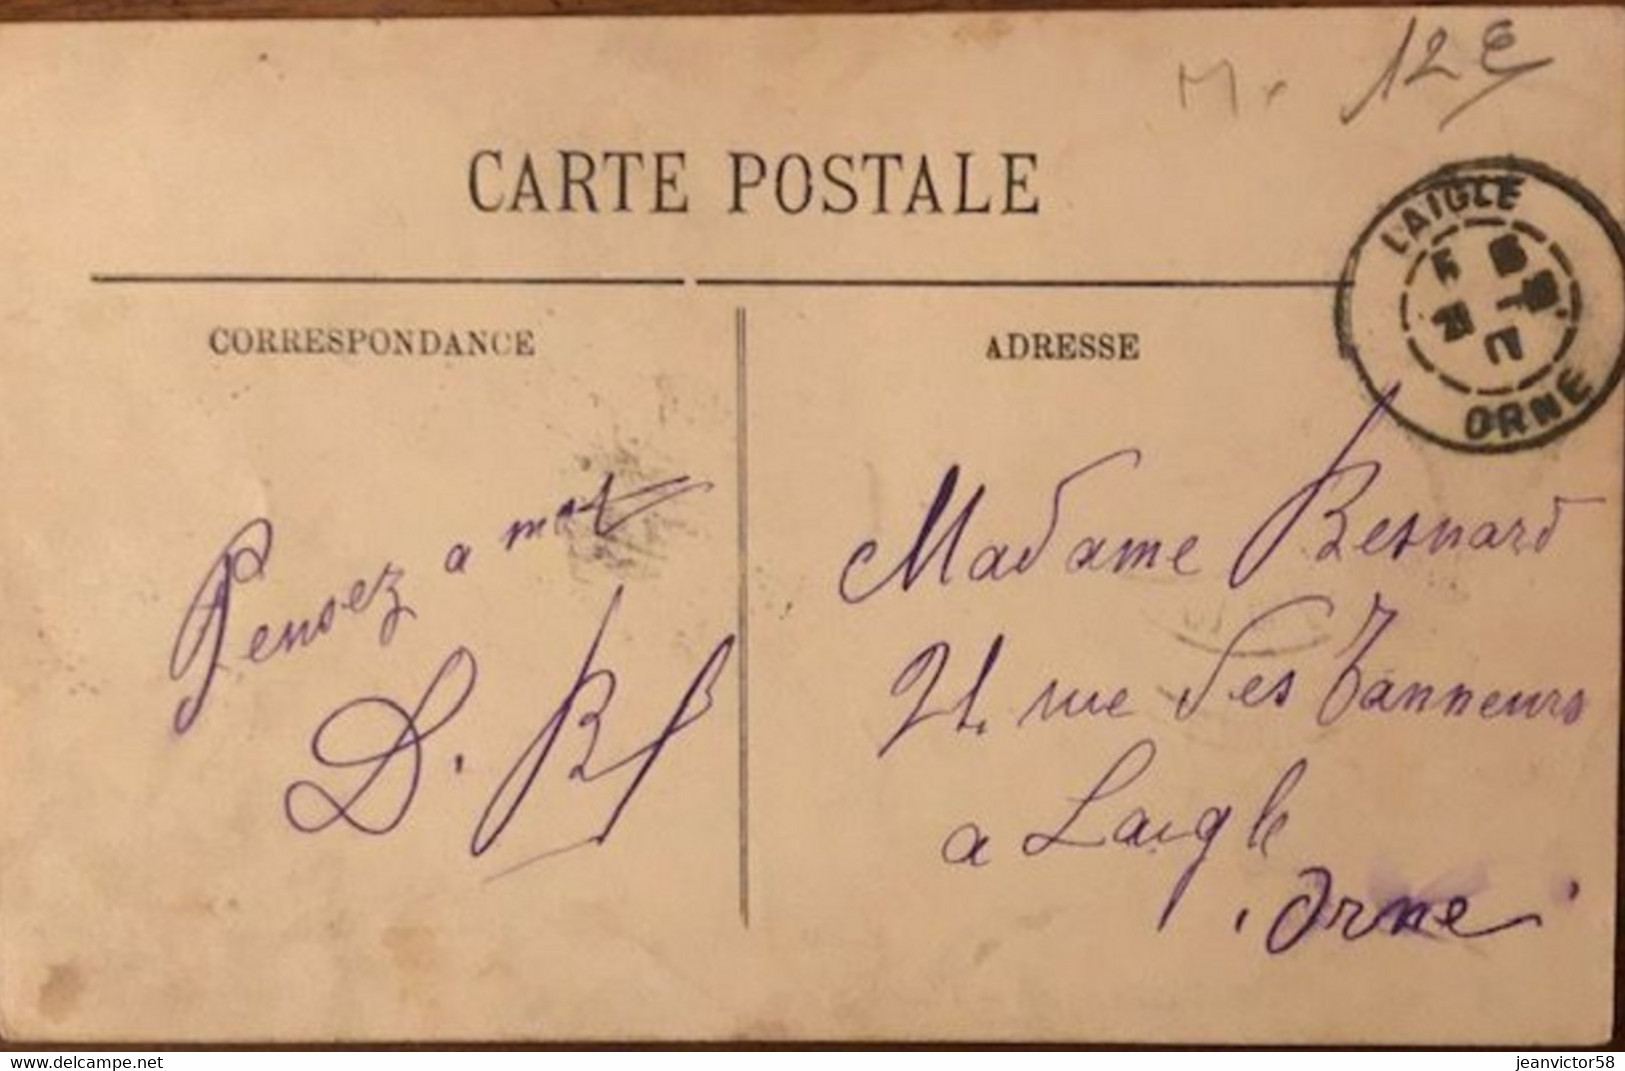 M x 12 €
CARTE POSTALE
L'AIGLE
ORNE
CORRESPONDANCE
ADRESSE
Pensez a mot
D. B
Madame Besnard
21 rue des Tanneurs
a Laigle
Orne
www.delcampe.net
jeanvictor58